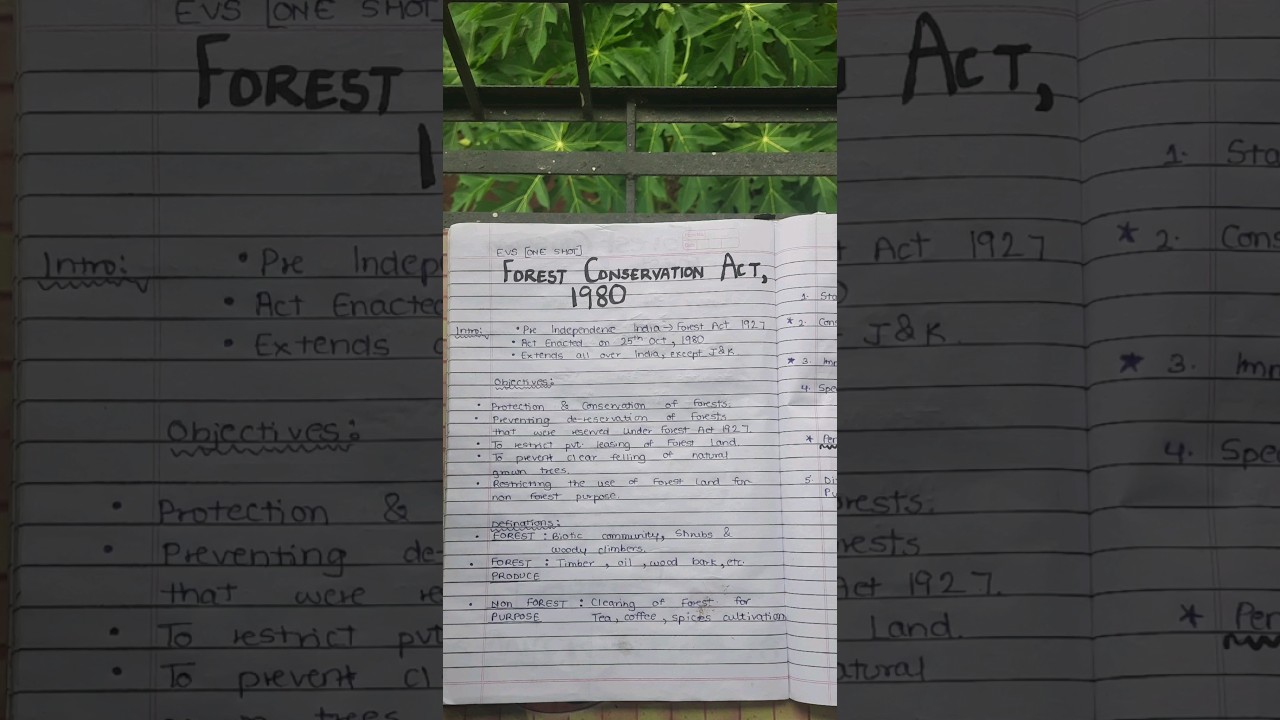 EVS [ONE SHOT]
FOREST CONSERVATION ACT,
1980
Intro:
• Pre Independenc India → Forest Act 1927
• Act Enacted on 25th Oct, 1980
• Extends all over India, except J&K.
Objectives:
• Protection & Conservation of Forests.
• Preventing de-reservation of Forests
that were reserved under Forest Act 1927.
• To restrict pvt. leasing of Forest Land.
• To prevent clear felling of natural
grown trees.
• Restricting the use of Forest Land for
non forest purpose.
Definations:
• FOREST : Biotic community, Shrubs &
woody climbers.
• FOREST : Timber, oil, wood bark, etc.
PRODUCE
• NON FOREST : Clearing of Forest for
PURPOSE Tea, coffee, spices cultivation
1. Sta
* 2. Cons
* 3. Imm
4. Spe
* Per
5. Di
Pu